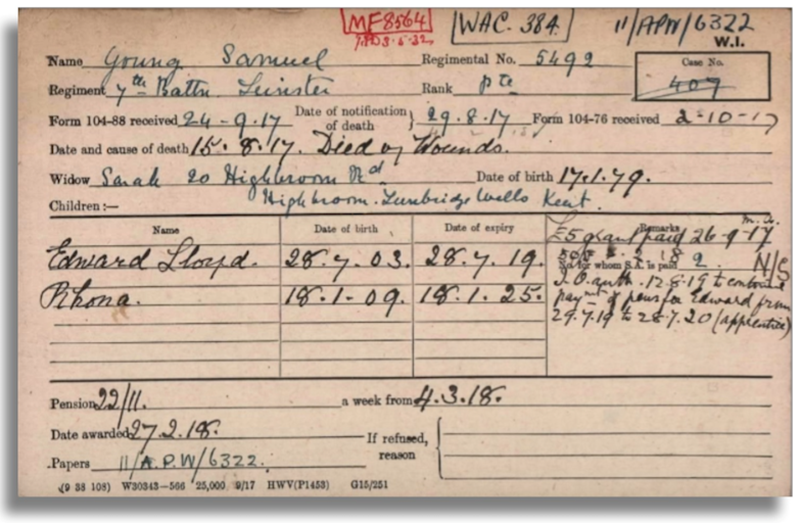 MF8564
WAC. 384.
11/APW/6322
W.I.
Name Young Samuel Regimental No. 5492
Case No.
407
Regiment 7th Battn. Leinster Rank Pte
Form 104-88 received 24-9.17 Date of notification of death } 29.8.17 Form 104-76 received 2-10-17
Date and cause of death 15.8.17. Died of Wounds.
Widow Sarah 20 Highbroom Rd Date of birth 17.1.79.
Children:— Highbroom. Tunbridge Wells Kent.
Name Date of birth Date of expiry Remarks
£5 grant paid 26-9-17
Edward Lloyd. 28.7.03. 28.7.19.
No. for whom S.A. is paid 2. N/S
Rhona. 18.1.09. 18.1.25.
auth. 12.8.19 to continue
paymt of pens for Edward from
29.7.19 to 28.7.20 (apprentice)
Pension 22/11. a week from 4.3.18.
Date awarded 27.2.18. If refused, reason {
Papers 11/A.P.W/6322.
(9 38 108) W30343—566 25,000 9/17 HWV(P1453) G15/251